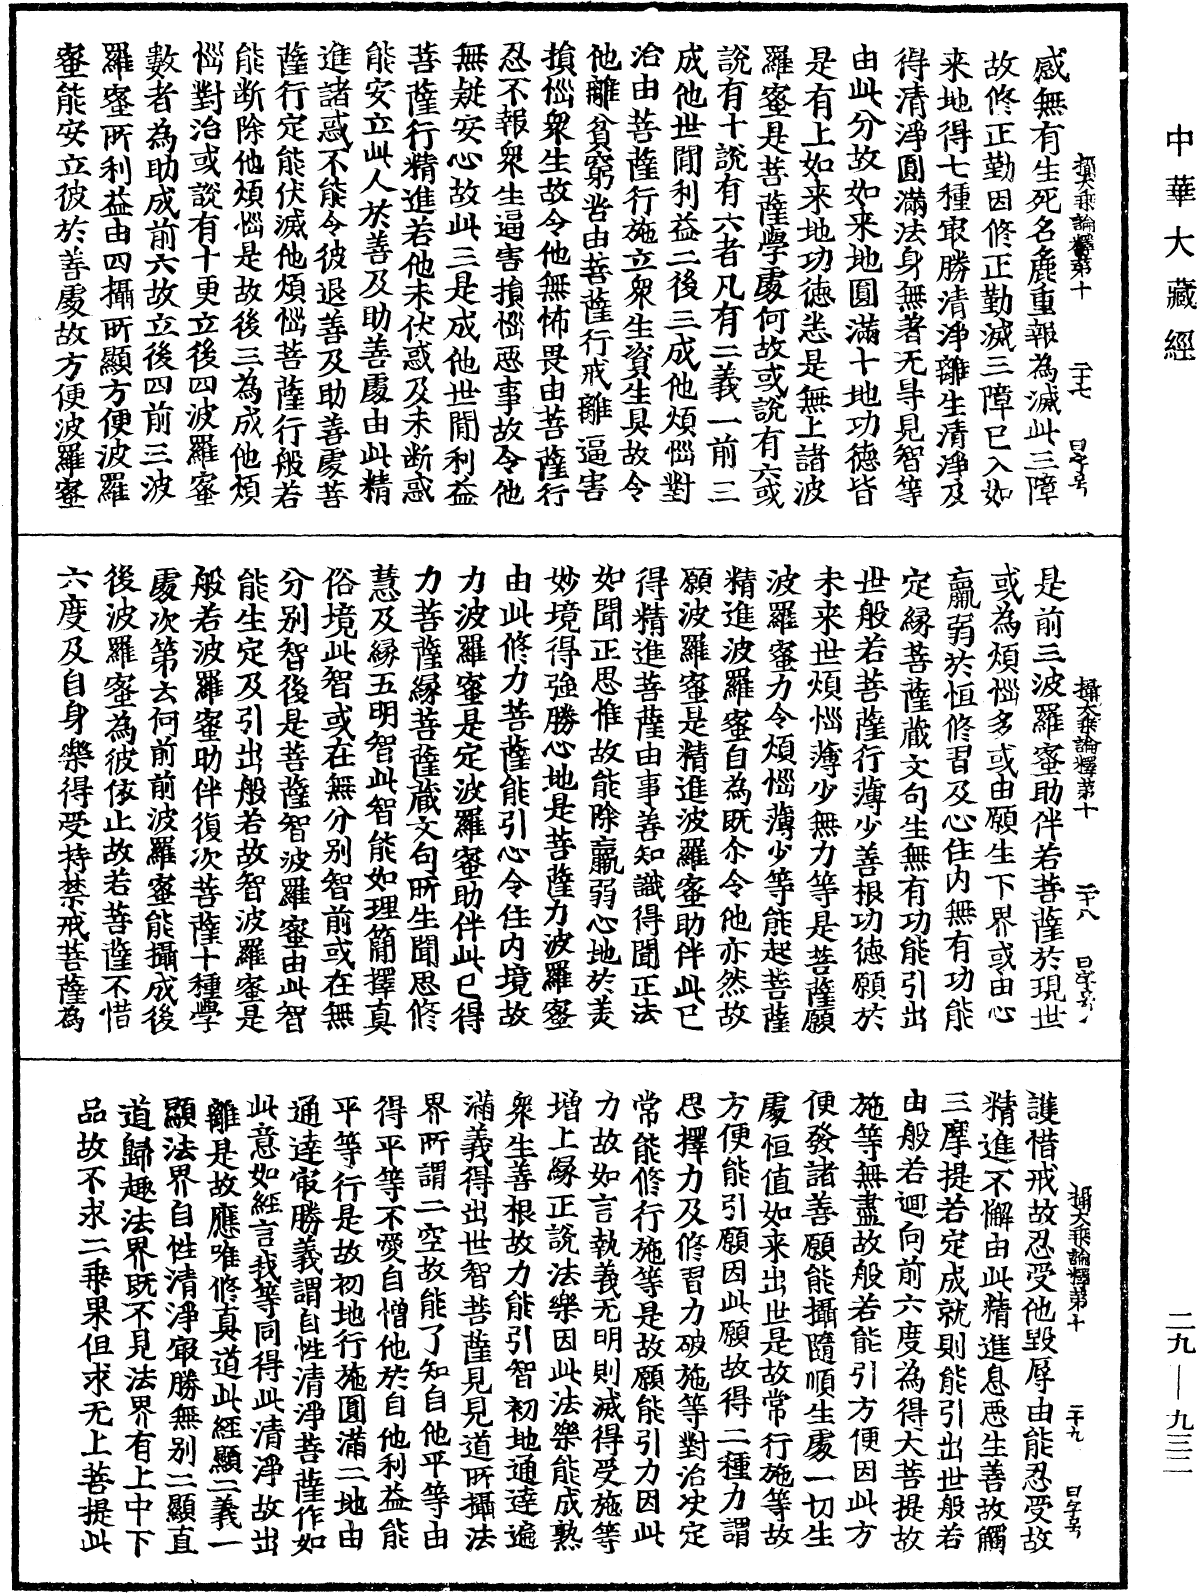 中華大藏經
二九—九三二
攝大乘論釋第十　二十七　曰字号
感無有生死名麁重報為滅此三障
故修正勤因修正勤滅三障已入如
来地得七種㝡勝清淨離生清淨及
得清淨圓滿法身無著无导見智等
由此分故如来地圓滿十地功德皆
是有上如来地功德悉是無上諸波
羅蜜是菩薩學處何故或說有六或
說有十說有六者凡有二義一前三
成他世間利益二後三成他煩惱對
治由菩薩行施立衆生資生具故令
他離貧窮苦由菩薩行戒離逼害
損惱衆生故令他無怖畏由菩薩行
忍不報衆生逼害損惱惡事故令他
無疑安心故此三是成他世間利益
菩薩行精進若他未伏惑及未断惑
能安立此人於善及助善處由此精
進諸惑不能令彼退善及助善處菩
薩行定能伏滅他煩惱菩薩行般若
能断除他煩惱是故後三為成他煩
惱對治或說有十更立後四波羅蜜
數者為助成前六故立後四前三波
羅蜜所利益由四攝所顯方便波羅
蜜能安立彼於善處故方便波羅蜜
攝大乘論釋第十　二十八　曰字号
是前三波羅蜜助伴若菩薩於現世
或為煩惱多或由願生下界或由心
羸弱於恒修習及心住内無有功能
定縁菩薩藏文句生無有功能引出
世般若菩薩行薄少善根功德願於
未来世煩惱薄少無力等是菩薩願
波羅蜜力令煩惱薄少等能起菩薩
精進波羅蜜自為既尒令他亦然故
願波羅蜜是精進波羅蜜助伴此已
得精進菩薩由事善知識得聞正法
如聞正思惟故能除羸弱心地於羙
妙境得強勝心地是菩薩力波羅蜜
由此修力菩薩能引心令住内境故
力波羅蜜是定波羅蜜助伴此已得
力菩薩縁菩薩藏文句所生聞思修
慧及縁五明智此智能如理簡擇真
俗境此智或在無分别智前或在無
分别智後是菩薩智波羅蜜由此智
能生定及引出般若故智波羅蜜是
般若波羅蜜助伴復次菩薩十種學
處次第云何前前波羅蜜能攝成後
後波羅蜜為彼依止故若菩薩不惜
六度及自身樂得受持禁戒菩薩為
攝大乘論釋第十　二十九　曰字号
護惜戒故忍受他毀辱由能忍受故
精進不懈由此精進息惡生善故觸
三摩提若定成就則能引出世般若
由般若迴向前六度為得大菩提故
施等無盡故般若能引方便因此方
便發諸善願能攝隨順生處一切生
處恒值如来出世是故常行施等故
方便能引願因此願故得二種力謂
思擇力及修習力破施等對治决定
常能修行施等是故願能引力因此
力故如言執義无明則滅得受施等
增上縁正說法樂因此法樂能成熟
衆生善根故力能引智初地通達遍
滿義得出世智菩薩見見道所攝法
界所謂二空故能了知自他平等由
得平等不愛自憎他於自他利益能
平等行是故初地行施圓滿二地由
通達㝡勝義謂自性清淨菩薩作如
此意如經言我等同得此清淨故出
離是故應唯修真道此經顯二義一
顯法界自性清淨㝡勝無别二顯直
道歸趣法界既不見法界有上中下
品故不求二乘果但求无上菩提此